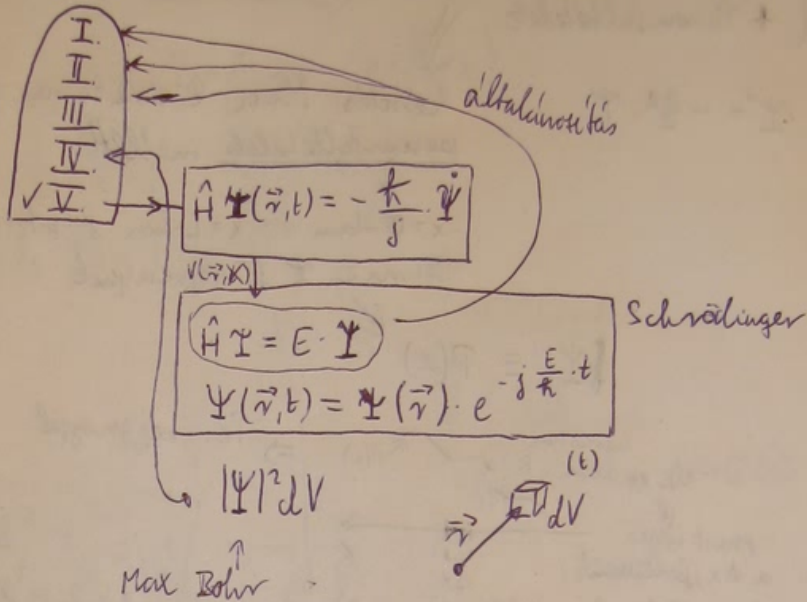 I.
II.
III
IV.
√ V.
általánosítás
Ĥ Ψ(r⃗,t) = - ℏ/j · Ψ̇
V(r⃗,t)
Ĥ Ψ = E · Ψ
Schrödinger
Ψ(r⃗,t) = Ψ(r⃗) · e^{-j E/ℏ · t}
|Ψ|² dV
(t)
r⃗ dV
Max Bohr